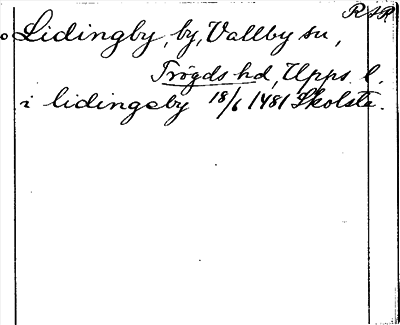 RAR
Lidingby, by, Vallby sn,
Trögds hd, Upps. l.
i lidingeby 18/6 1481 Skolsta.